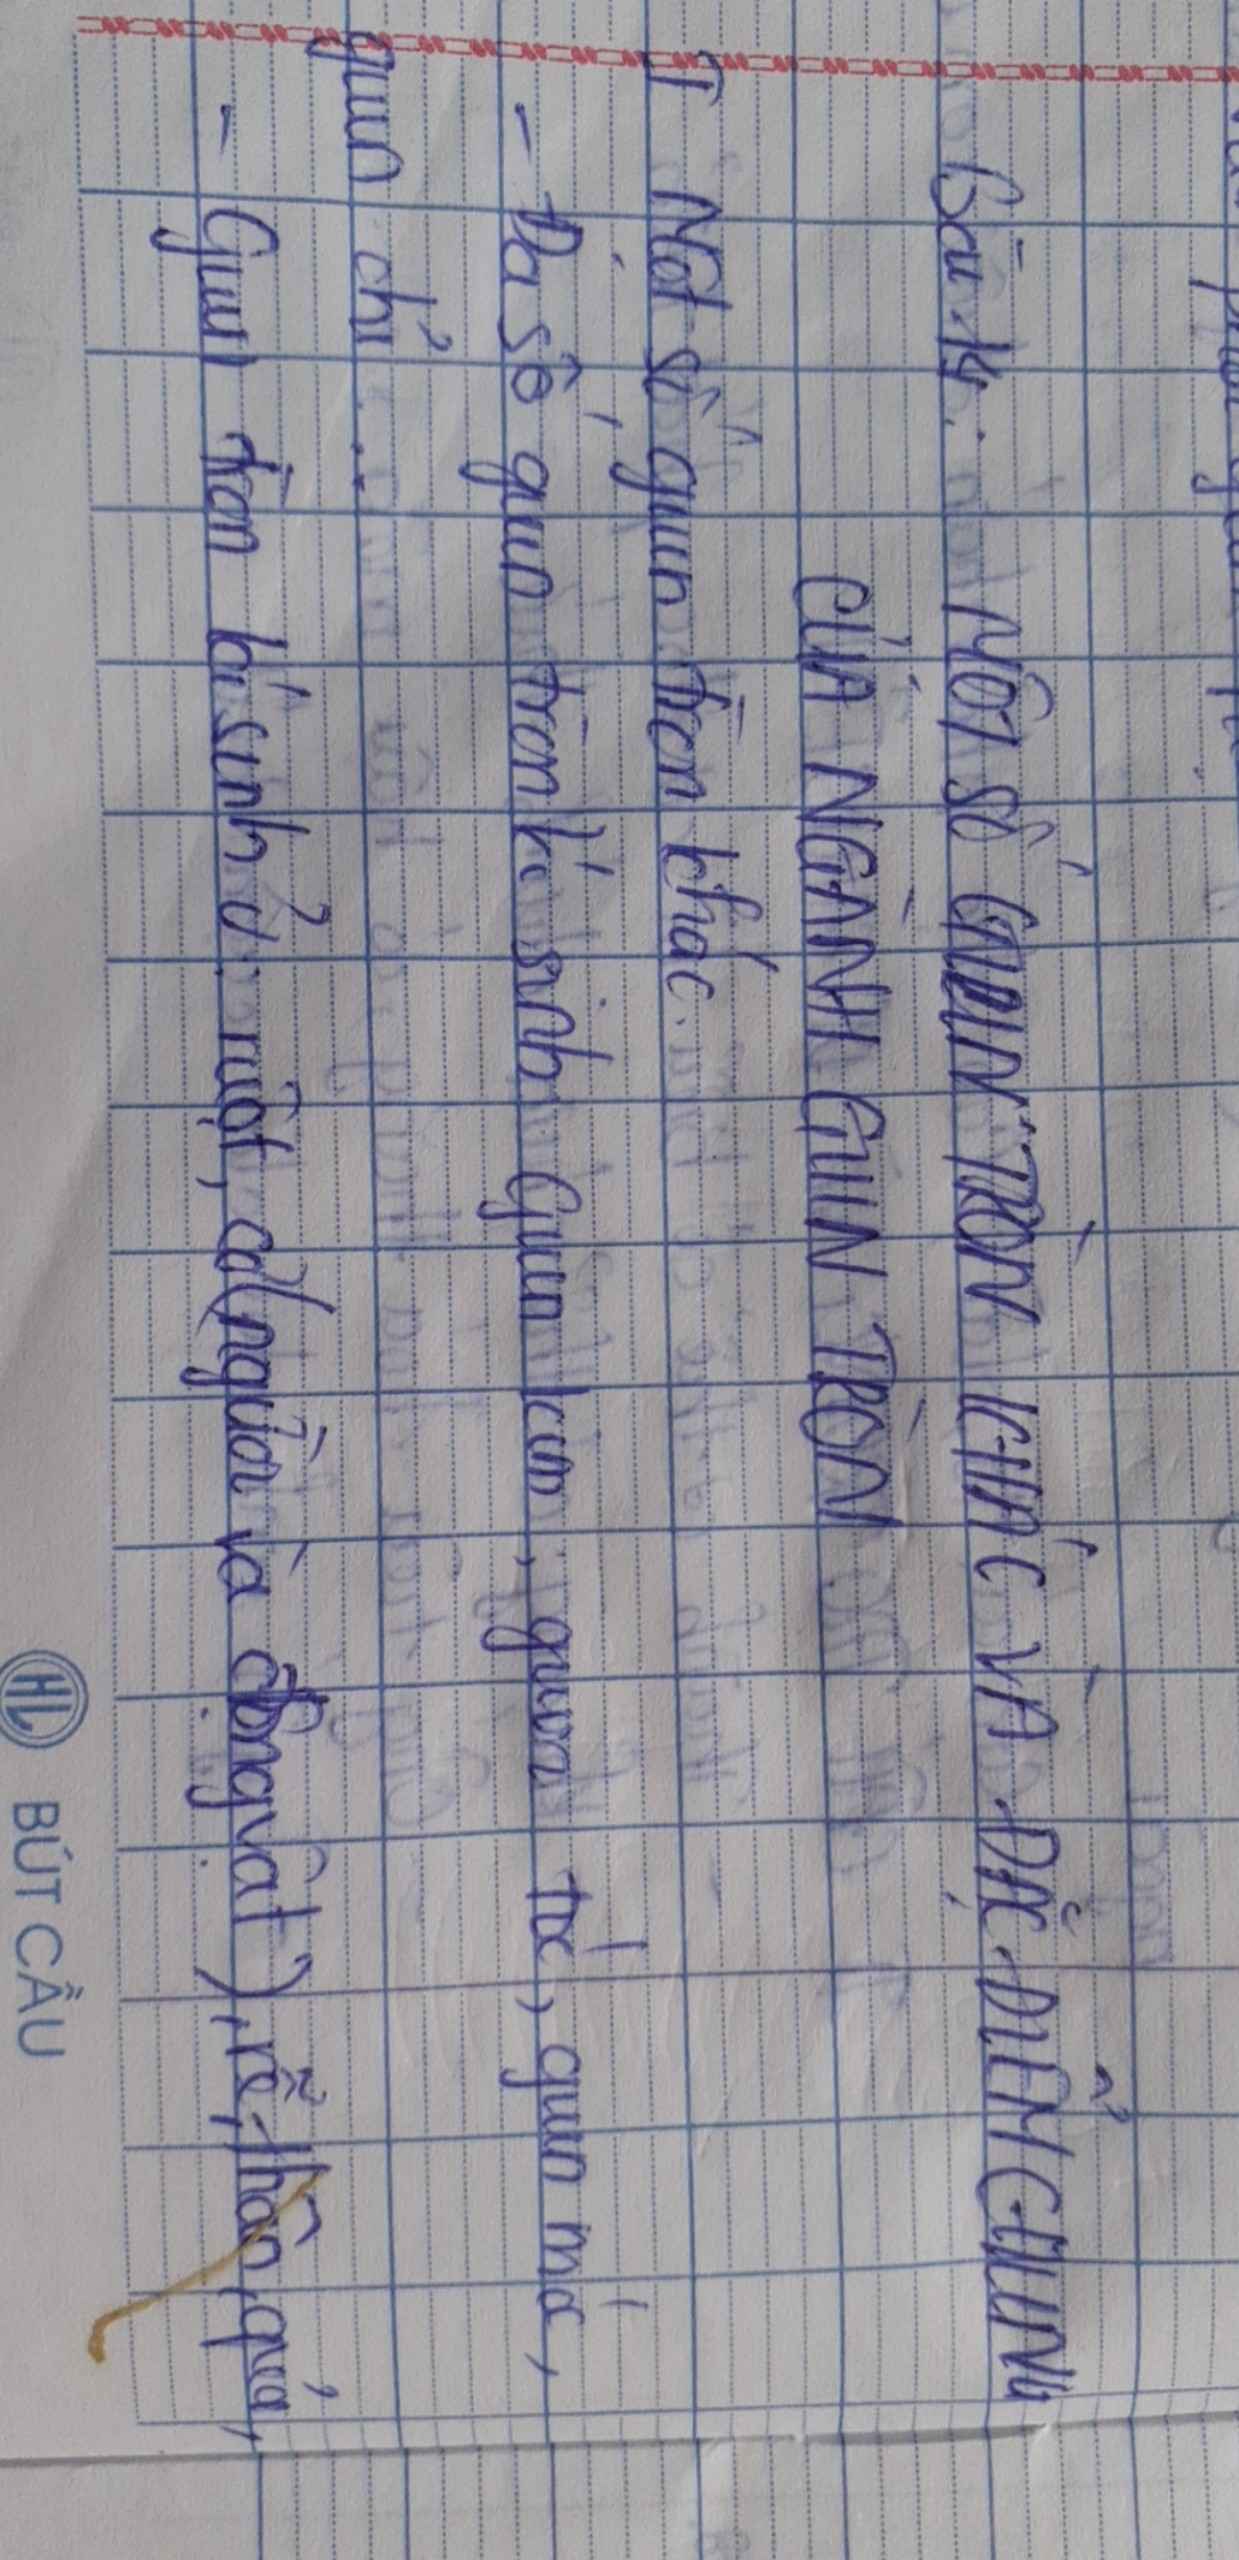 Bài 14: MỘT SỐ GIUN TRÒN KHÁC VÀ ĐẶC ĐIỂM CHUNG
CỦA NGÀNH GIUN TRÒN
I Một số giun tròn khác.
- Đa số giun tròn kí sinh Giun kim, giun tóc, giun móc,
giun chỉ...
- Giun tròn kí sinh ở: ruột, cơ(người và động vật), rễ, thân, quả,
HL BÚT CÂU